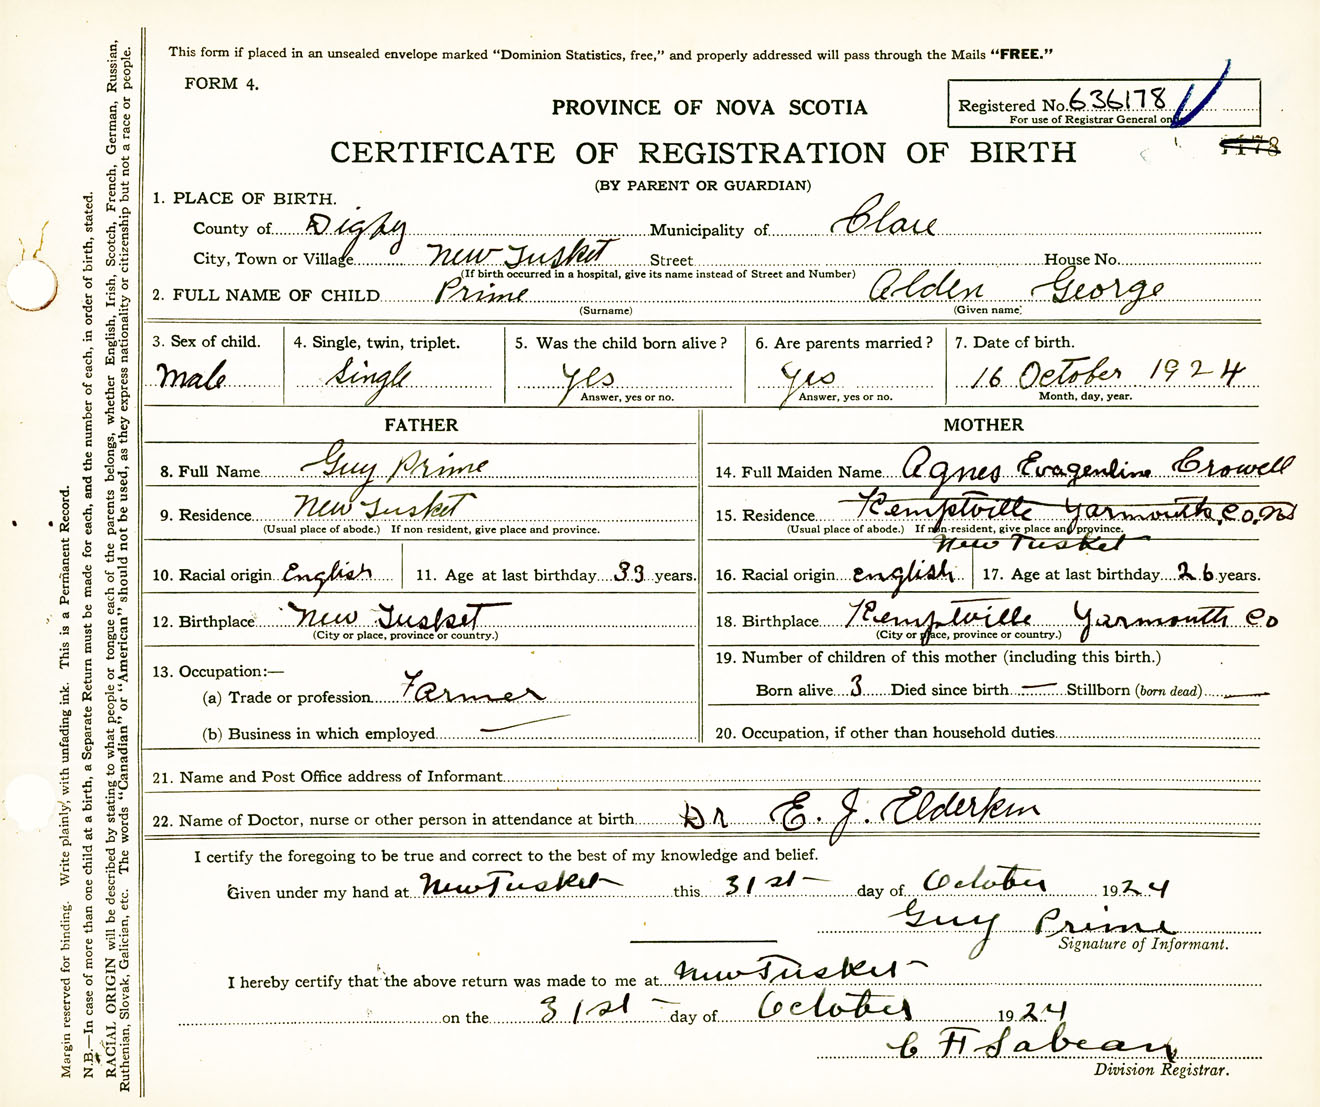 This form if placed in an unsealed envelope marked "Dominion Statistics, free," and properly addressed will pass through the Mails "FREE."
FORM 4.
PROVINCE OF NOVA SCOTIA
Registered No. 636178
For use of Registrar General on
CERTIFICATE OF REGISTRATION OF BIRTH
(BY PARENT OR GUARDIAN)
1. PLACE OF BIRTH.
County of Digby Municipality of Clare
City, Town or Village New Tusket Street House No.
(If birth occurred in a hospital, give its name instead of Street and Number)
2. FULL NAME OF CHILD Prime Alden George
(Surname) (Given name)
3. Sex of child. 4. Single, twin, triplet. 5. Was the child born alive? 6. Are parents married? 7. Date of birth.
Male Single yes yes 16 October 1924
Answer, yes or no. Answer, yes or no. Month, day, year.
FATHER
8. Full Name Guy Prime
9. Residence New Tusket
(Usual place of abode.) If non resident, give place and province.
10. Racial origin English 11. Age at last birthday 33 years.
12. Birthplace New Tusket
(City or place, province or country.)
13. Occupation:—
(a) Trade or profession Farmer
(b) Business in which employed —
MOTHER
14. Full Maiden Name Agnes Evagenline Crowell
15. Residence Kemptville Yarmouth Co, NS
(Usual place of abode.) If non-resident, give place and province.
New Tusket
16. Racial origin english 17. Age at last birthday 26 years.
18. Birthplace Kemptville Yarmouth Co
(City or place, province or country.)
19. Number of children of this mother (including this birth.)
Born alive 3 Died since birth — Stillborn (born dead) —
20. Occupation, if other than household duties
21. Name and Post Office address of Informant
22. Name of Doctor, nurse or other person in attendance at birth Dr E. J. Elderkin
I certify the foregoing to be true and correct to the best of my knowledge and belief.
Given under my hand at New Tusket this 31st day of October 1924
Guy Prime
Signature of Informant.
I hereby certify that the above return was made to me at New Tusket
on the 31st day of October 1924
C H Sabean
Division Registrar.
Margin reserved for binding. Write plainly, with unfading ink. This is a Permanent Record.
N.B.—In case of more than one child at a birth, a Separate Return must be made for each, and the number of each, in order of birth, stated.
RACIAL ORIGIN will be described by stating to what people or tongue each of the parents belongs, whether English, Irish, Scotch, French, German, Russian,
Ruthenian, Slovak, Galician, etc. The words "Canadian" or "American" should not be used, as they express nationality or citizenship but not a race or people.